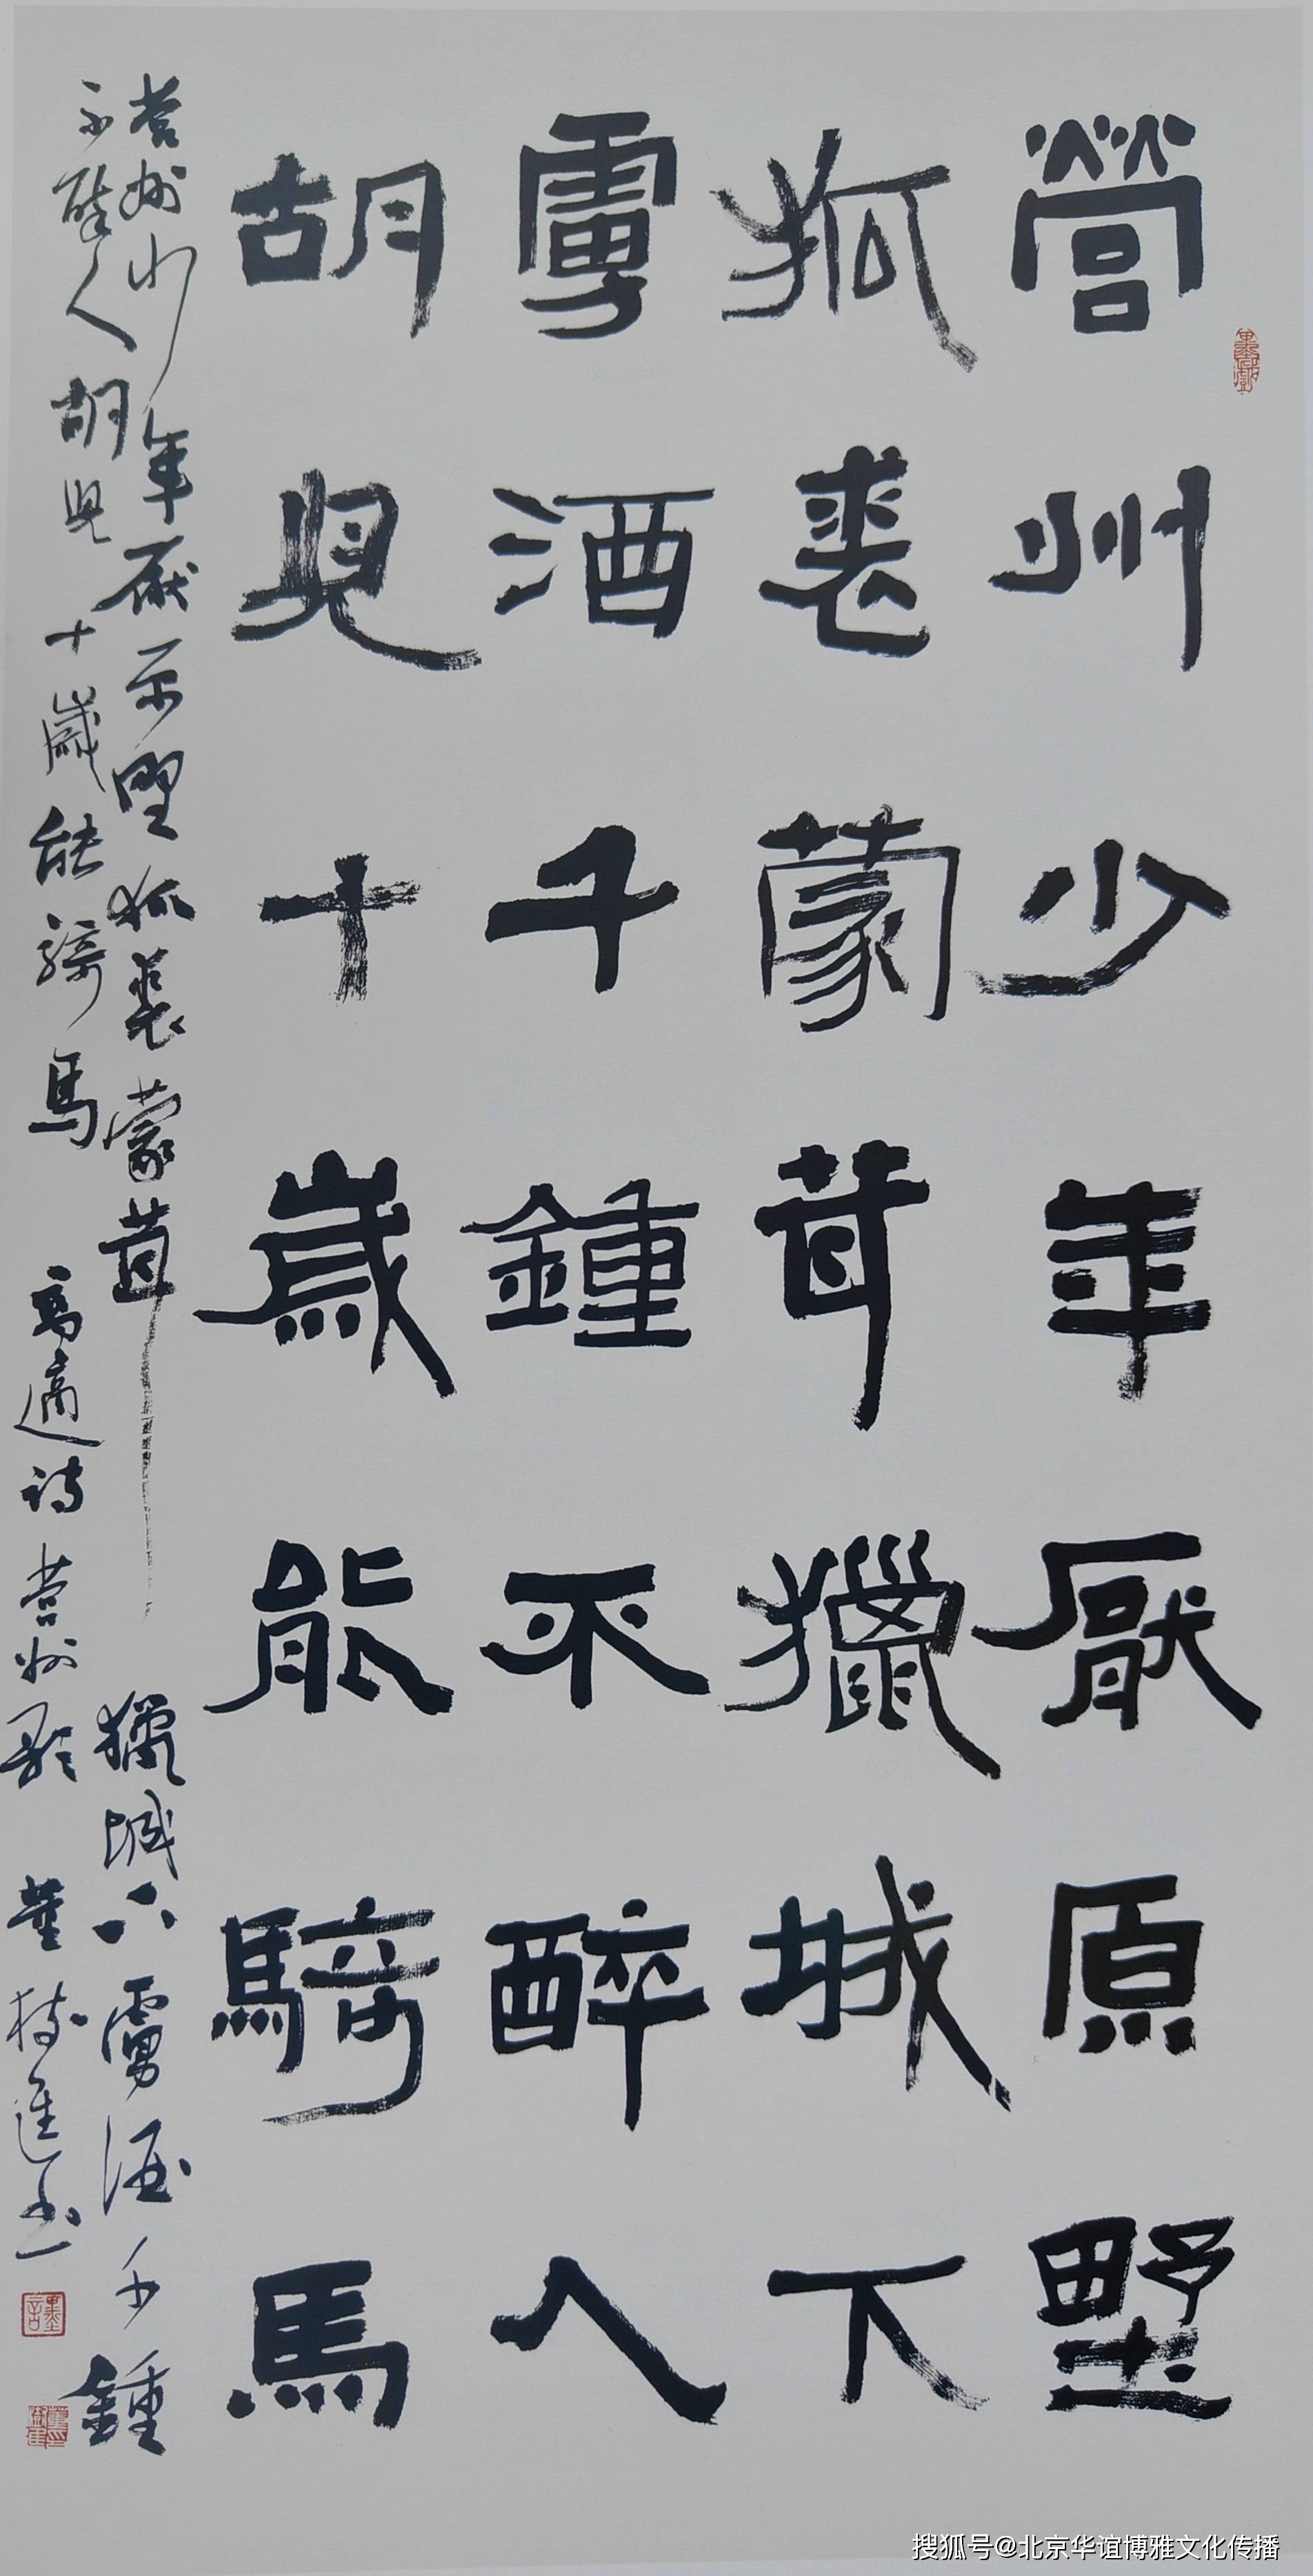 營州少年厭原野
狐裘蒙茸獵城下
虜酒千鍾不醉人
胡兒十歲能騎馬
營州少年厭原野狐裘蒙茸獵城下虜酒千鍾
不醉人胡兒十歲能騎馬 高適詩營州歌 董進書
搜狐号@北京华谊博雅文化传播